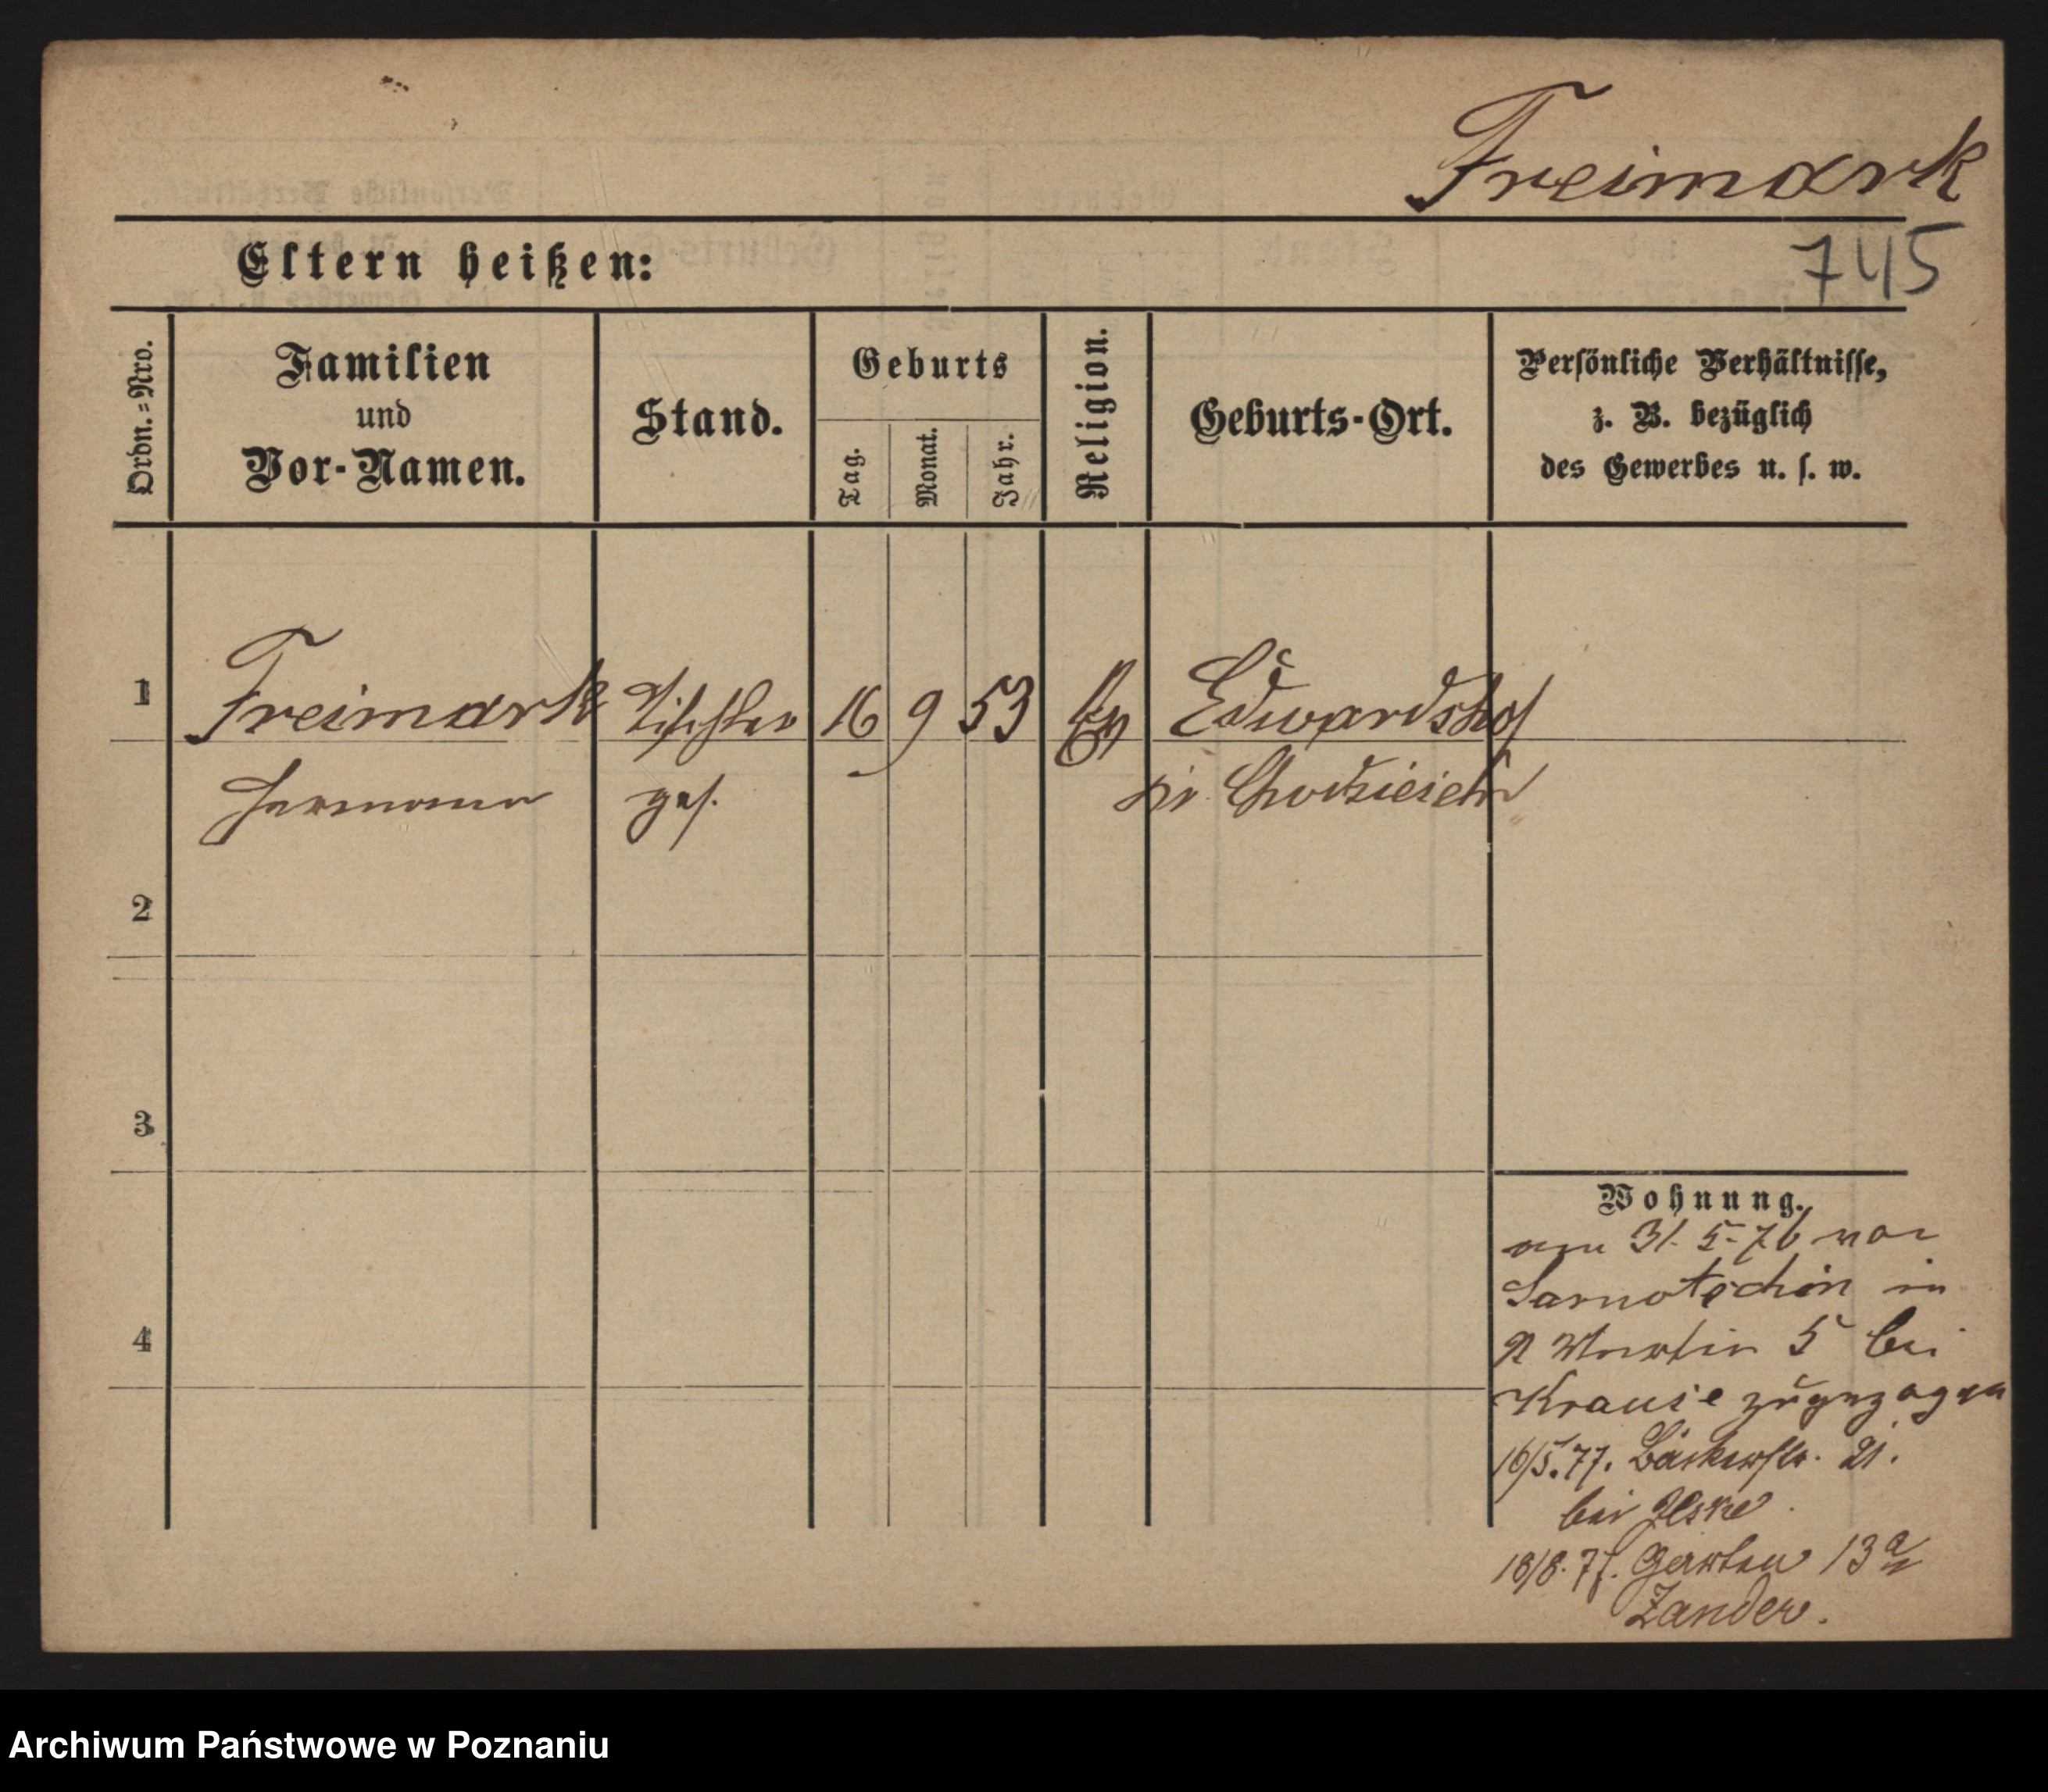 Freimark
745
Eltern heißen:
Ordn.=Nro.
Familien
und
Vor-Namen.
Stand.
Geburts
Tag.
Monat.
Jahr.
Religion.
Geburts-Ort.
Persönliche Verhältnisse,
z. B. bezüglich
des Gewerbes u. s. w.
1
Freimark Tischler 16 9 53 Ev Eduardshof
Hermann ges. Kr. Chodziesen
2
3
4
Wohnung.
am 31. 5. 76 von
Sarnotschin in
St Martin 5 bei
Krause zugezogen
16/5. 77. Bäckerstr. 21.
bei Jeske
18/8. 77. Garten 13a
Zander.
Archiwum Państwowe w Poznaniu